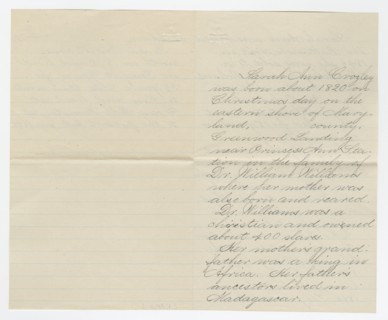 Sarah Ann Croxley
was born about 1820 on
Christmas day on the
western shore of Mary-
land, county,
Greenwood Landing
near Princess Ann Sta-
tion in the family of
Dr. William Williams
where her mother was
also born and reared.
Dr. Williams was a
christian and owned
about 400 slaves.
Her mother's grand
father was a king in
Africa. Her father's
ancestors lived in
Madagascar.